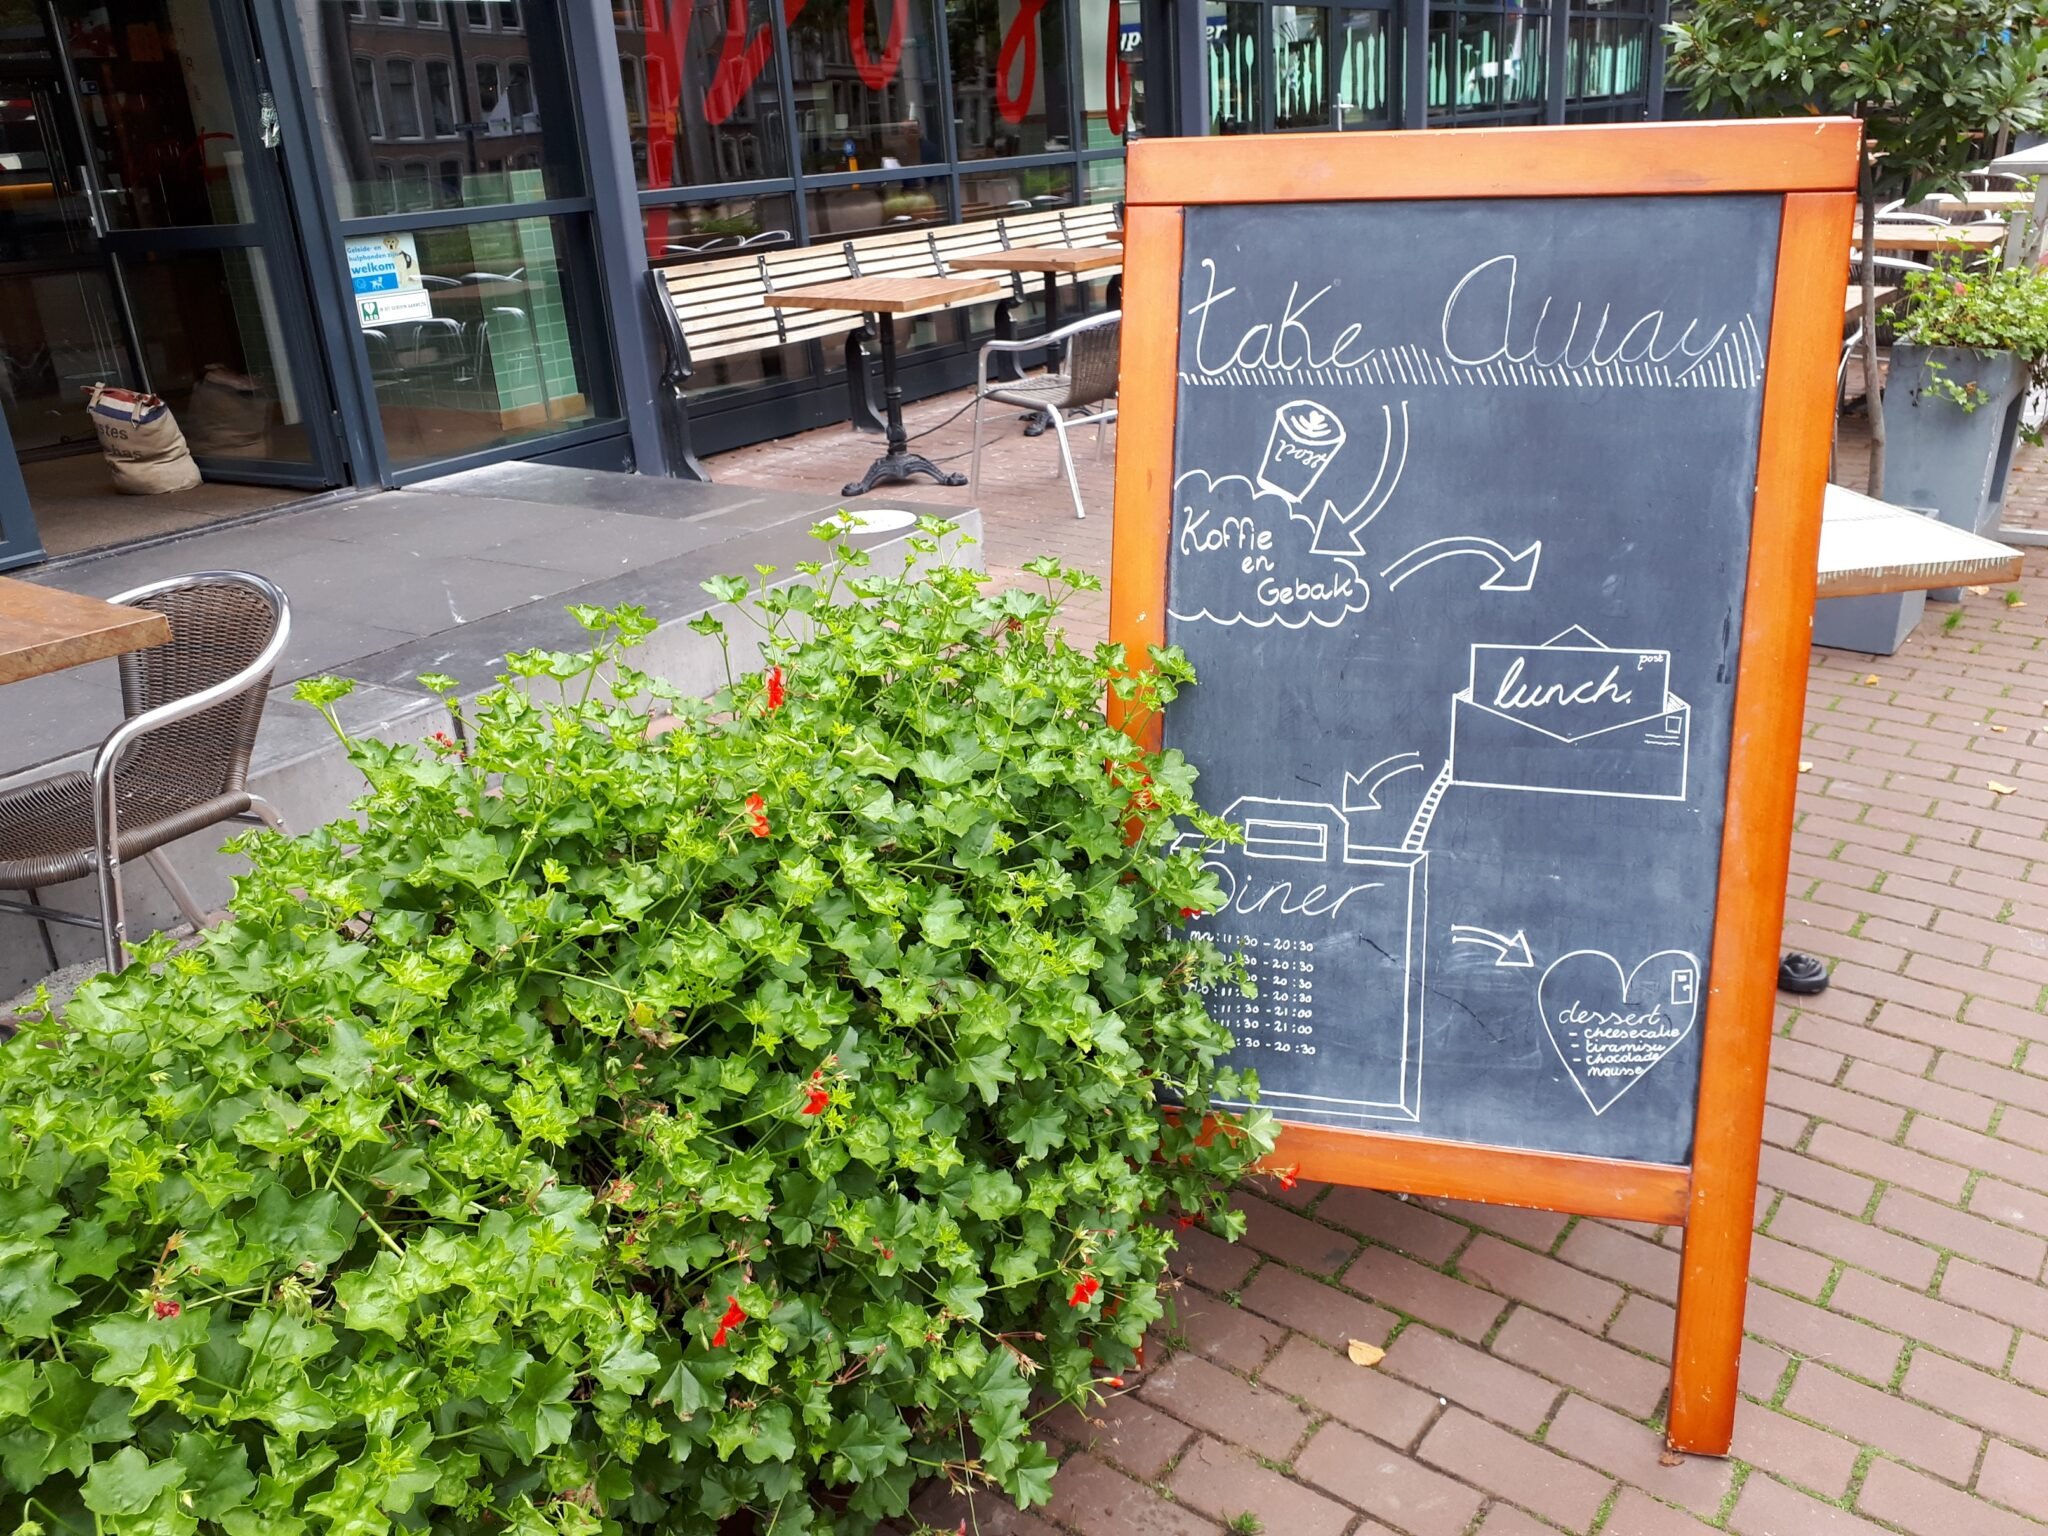 take Away
post
Koffie
en
Gebak
post
lunch.
Diner
ma: 11:30 - 20:30
:30 - 20:30
:30 - 20:30
11:30 - 20:30
11:30 - 21:00
11:30 - 21:00
:30 - 20:30
dessert
- cheesecake
- tiramisu
- chocolade
mousse
Geleide- en
hulphonden zijn
welkom
AED